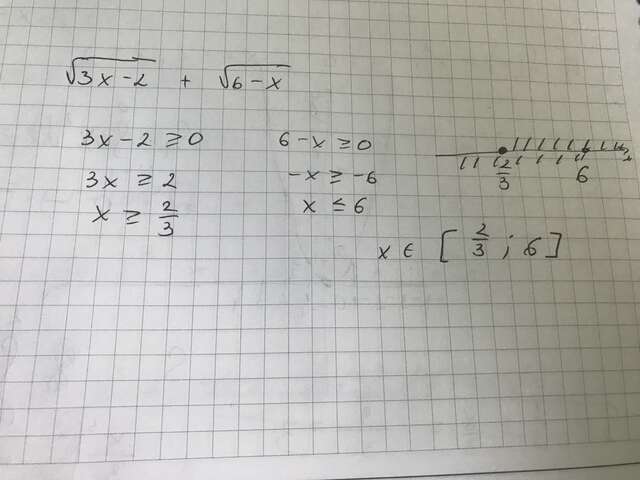 √(3x-2) + √(6-x)
3x-2 ≥ 0
3x ≥ 2
x ≥ 2/3
6-x ≥ 0
-x ≥ -6
x ≤ 6
2/3 6
x ∈ [ 2/3 ; 6 ]